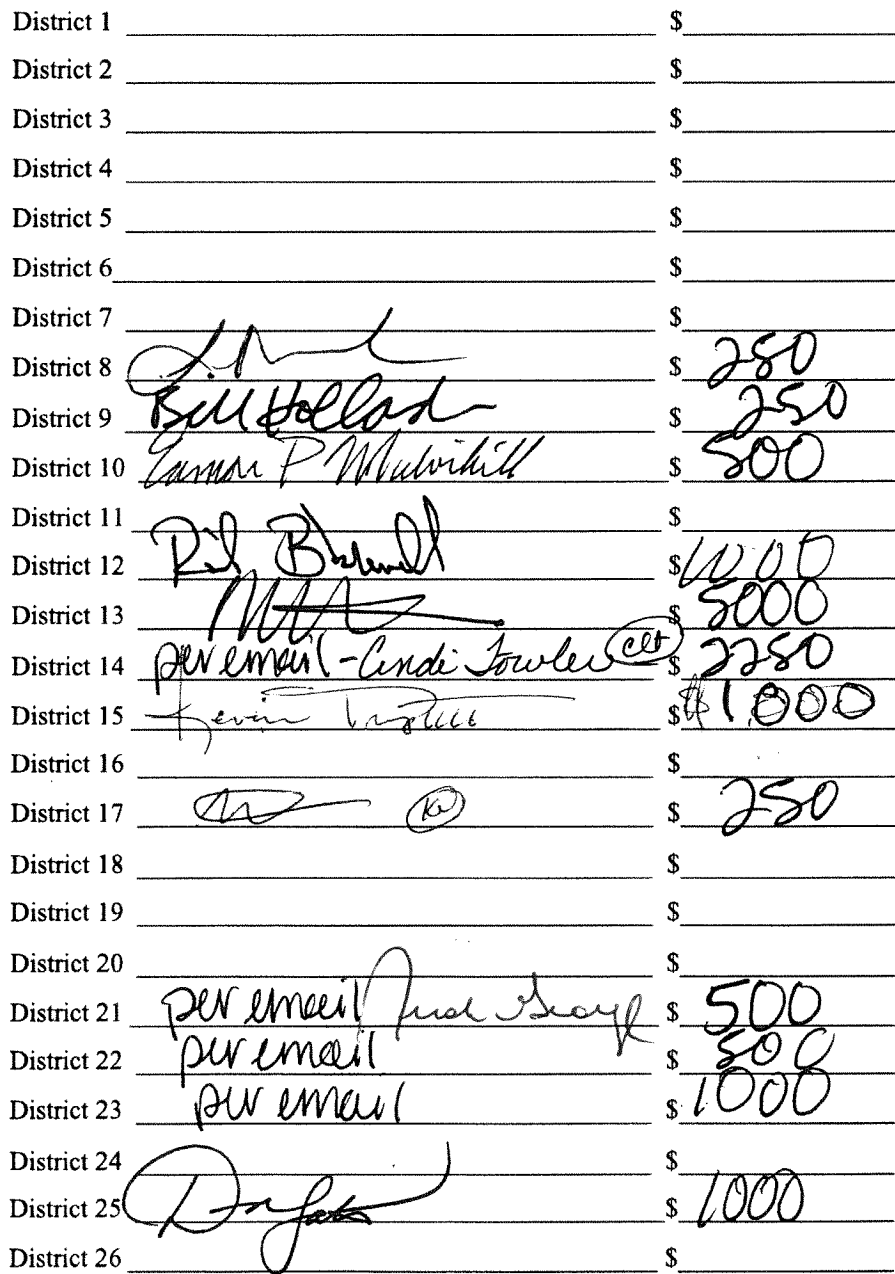 District 1 $
District 2 $
District 3 $
District 4 $
District 5 $
District 6 $
District 7 $
District 8 $ 250
District 9 Bill Hollad $ 250
District 10 Eamon P Mulvihill $ 500
District 11 $
District 12 Rick Blackwell $ 1000
District 13 $ 5000
District 14 per email - Cindi Fowler clt $ 2250
District 15 Kevin $ $1,000
District 16 $
District 17 KW $ 250
District 18 $
District 19 $
District 20 $
District 21 per email $ 500
District 22 per email $ 500
District 23 per email $ 1000
District 24 $
District 25 $ 1000
District 26 $